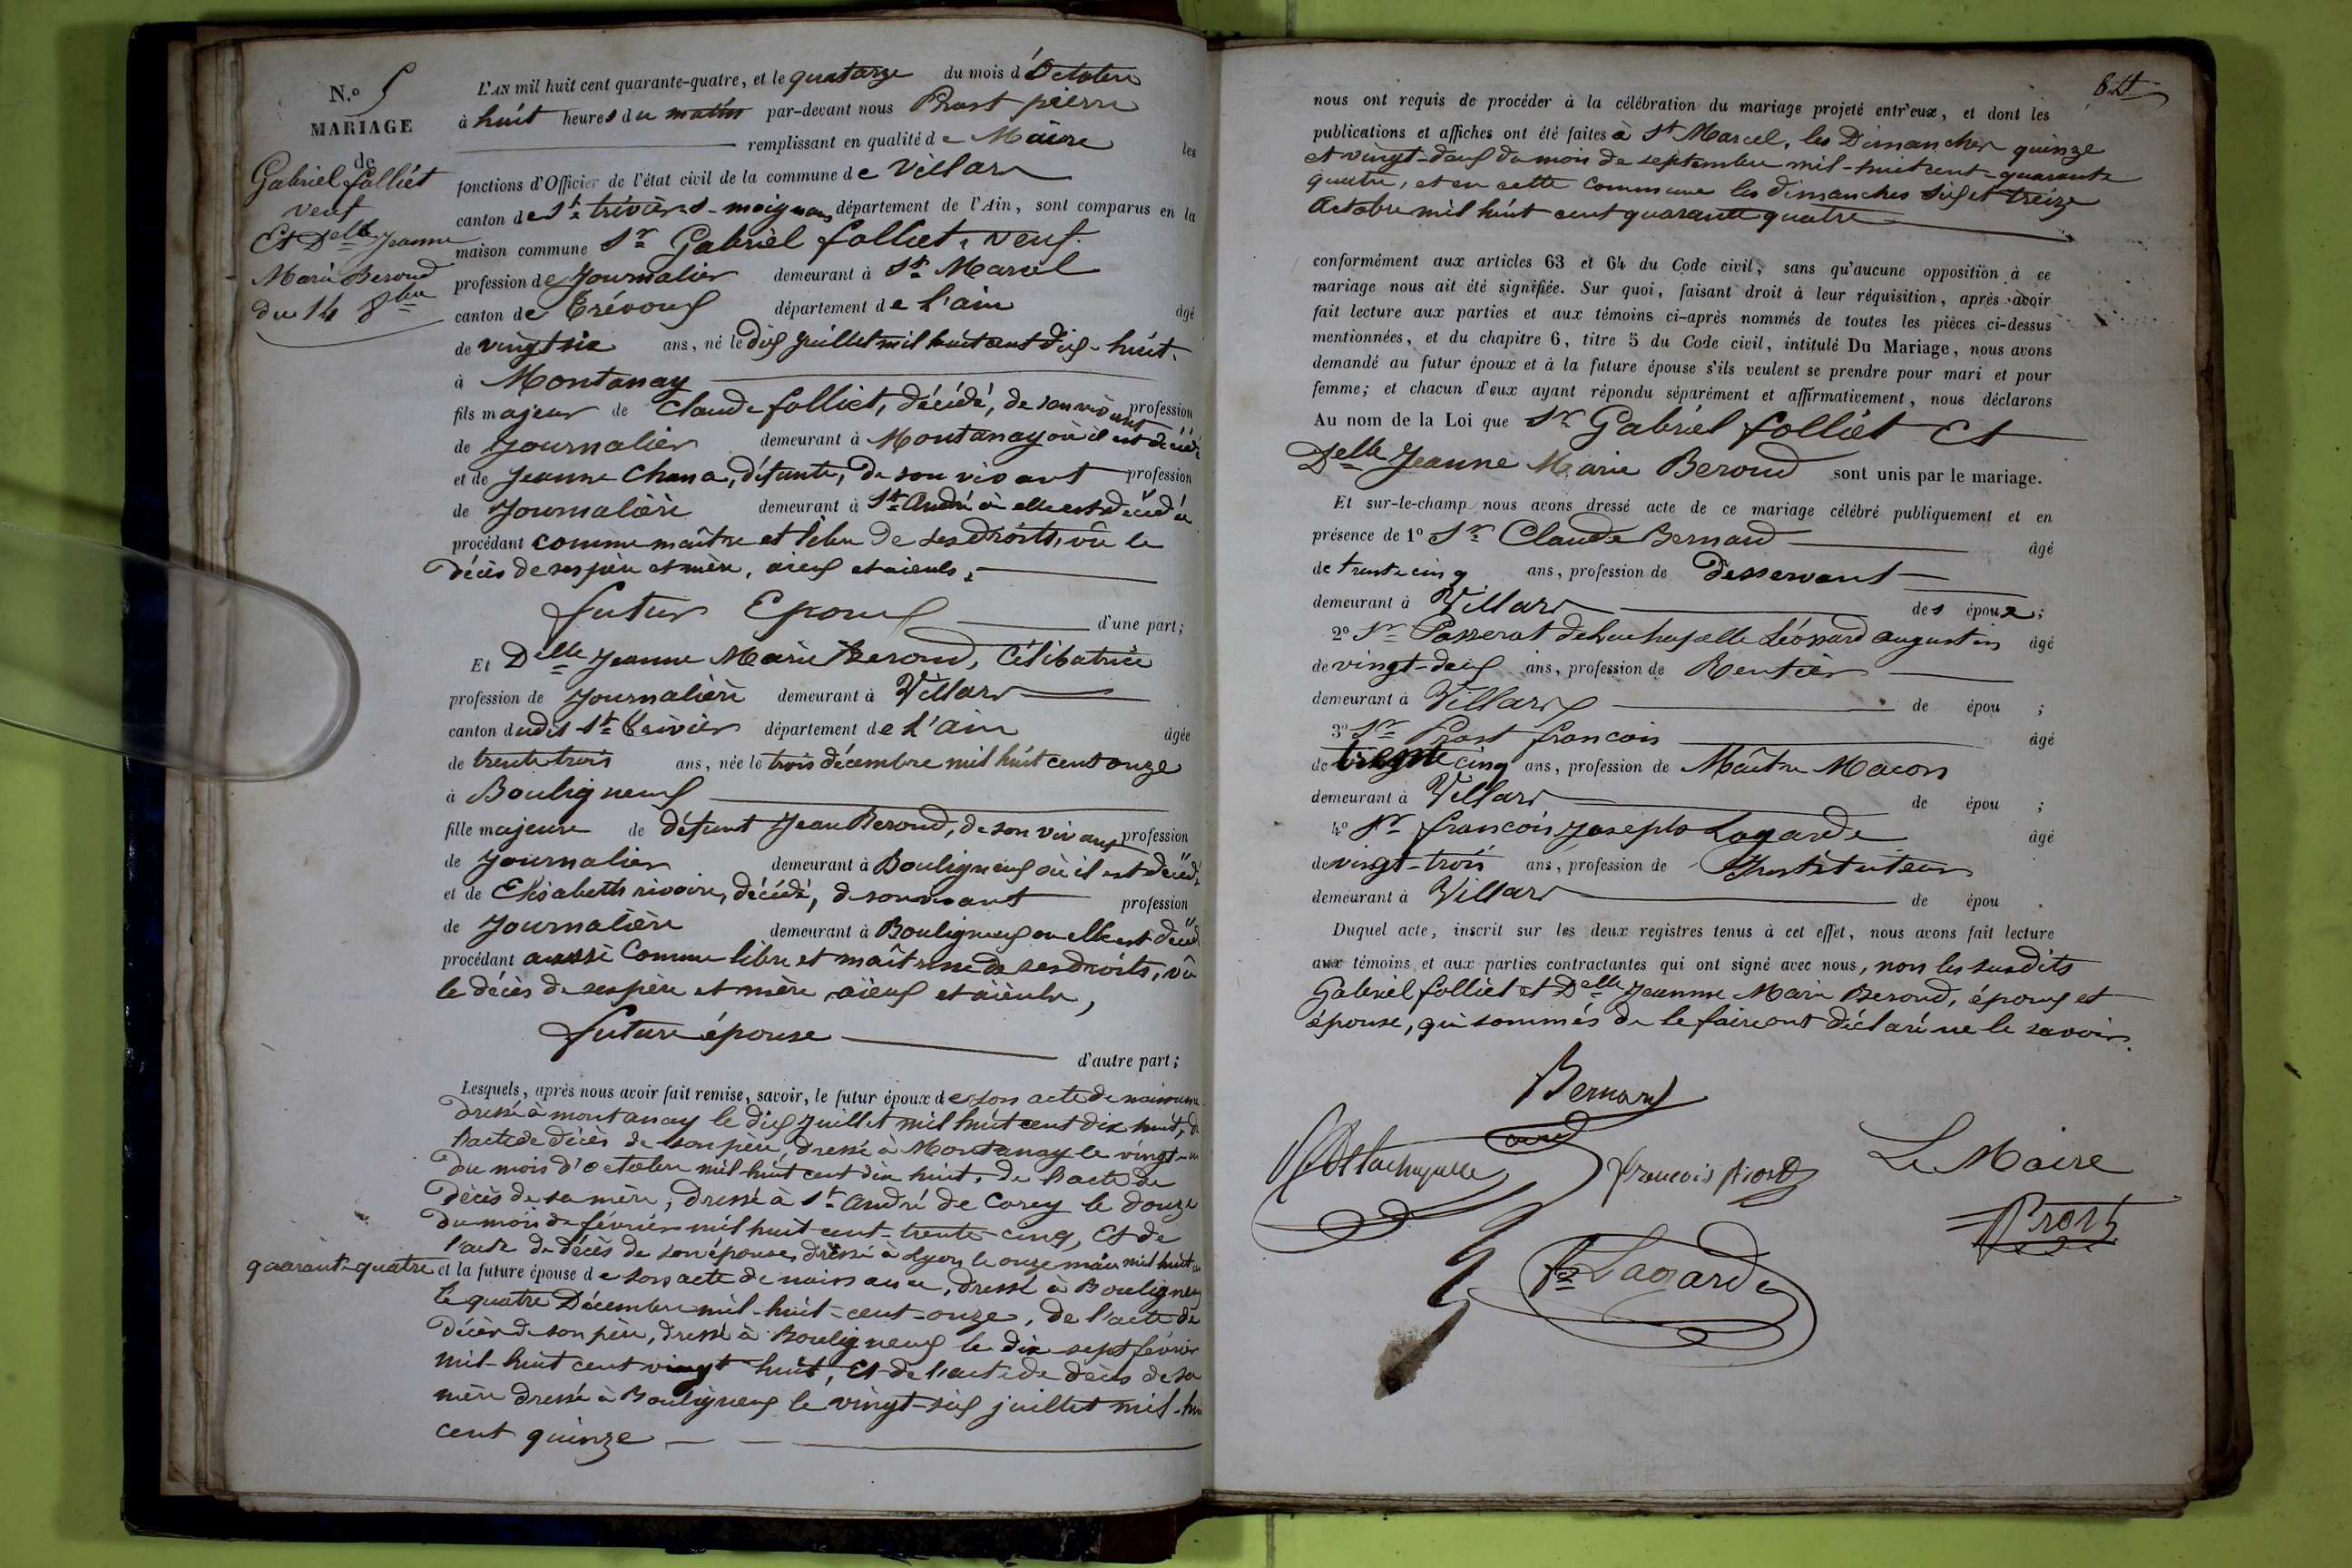 N.° 5
MARIAGE
de
Gabriel folliet
veuf
Et Delle Jeanne
Marie Beroud
du 14 8bre
L'AN mil huit cent quarante-quatre, et le quatorze du mois d'Octobre
à huit heures du matin par-devant nous Prost pierre
remplissant en qualité de Maire les
fonctions d'Officier de l'état civil de la commune de Villars
canton de St trivier-s-moignans département de l'Ain, sont comparus en la
maison commune Sr Gabriel folliet, veuf.
profession de Journalier demeurant à St Marcel
canton de Trévoux département de l'ain âgé
de vingt six ans, né le dix juillet mil huit cent dix-huit.
à Montanay
fils majeur de Claude folliet, décédé, de son vivant profession
de Journalier demeurant à Montanay où il est décédé
et de Jeanne Chana, défunte, de son vivant profession
de Journalière demeurant à St André où elle est décédée
procédant comme maître et libre de ses droits, vû le
décès de ses père et mère, aieux et aieuls,
futur Epoux d'une part;
Et Delle Jeanne Marie Beroud, Célibatrice
profession de Journalière demeurant à Villars
canton dudit St Trivier département de L'Ain âgée
de trente trois ans, née le trois décembre mil huit cent onze
à Bouligneux
fille majeure de défunt Jean Beroud, de son vivant profession
de Journalier demeurant à Bouligneux où il est décédé
et de Elisabeth rivoire, décédé, de son vivant profession
de Journalière demeurant à Bouligneux ou elle est décéd
procédant aussi Comme libre et maîtresse de ses droits, vû
le décès de ses père et mère aieux et aieule,
future épouse d'autre part;
Lesquels, après nous avoir fait remise, savoir, le futur époux de son acte de naissance
dressé à montanay le dix juillet mil huit cent dix huit, de
l'acte de décès de son père, dressé à Montanay le vingt-
du mois d'octobre mil-huit cent dix huit, de l'acte de
décès de sa mère, dressé à St André de Corcy le douze
du mois de février mil huit-cent-trente-cinq, Et de
l'acte de décès de son épouse, dressé à Lyon le onze mai mil huit
quarante-quatre et la future épouse de son acte de naissance, dressé à Bouligneux
le quatre Décembre mil-huit-cent-onze, de l'acte de
décès de son père, dressé à Bouligneux le dix sept février
mil-huit cent vingt huit, Et de l'acte de décès de sa
mère dressé à Bouligneux le vingt-six juillet mil-hui
cent quinze
nous ont requis de procéder à la célébration du mariage projeté entr'eux, et dont les
publications et affiches ont été faites à St Marcel, les Dimanches quinze
et vingt-deux du mois de septembre mil-huit cent-quarante
quatre, et en cette Commune les dimanches six et treize
Octobre mil huit cent quarante quatre
conformément aux articles 63 et 64 du Code civil, sans qu'aucune opposition à ce
mariage nous ait été signifiée. Sur quoi, faisant droit à leur réquisition, après avoir
fait lecture aux parties et aux témoins ci-après nommés de toutes les pièces ci-dessus
mentionnées, et du chapitre 6, titre 5 du Code civil, intitulé Du Mariage, nous avons
demandé au futur époux et à la future épouse s'ils veulent se prendre pour mari et pour
femme; et chacun d'eux ayant répondu séparément et affirmativement, nous déclarons
Au nom de la Loi que Sr Gabriel folliet Et
Delle Jeanne Marie Beroud sont unis par le mariage.
Et sur-le-champ nous avons dressé acte de ce mariage célébré publiquement et en
présence de 1° Sr Claude Bernard âgé
de trente cinq ans, profession de Desservant
demeurant à Villars des époux;
2° Sr Passerat de Lachapelle Léopard augustin âgé
de vingt-deux ans, profession de Rentier
demeurant à Villars de épou ;
3° Sr Prost francois âgé
de trente cinq ans, profession de Maître Macon
demeurant à Villars de épou ;
4° Sr francois Joseph Lagarde âgé
de vingt-trois ans, profession de Instituteur
demeurant à Villars de épou .
Duquel acte, inscrit sur les deux registres tenus à cet effet, nous avons fait lecture
aux témoins et aux parties contractantes qui ont signé avec nous, non les susdits
Gabriel folliet et Delle Jeanne Marie Beroud, époux et
épouse, qui sommés de le faire ont déclaré ne le savoir.
Bernard
curé
francois
Le Maire
Prost
Lagarde